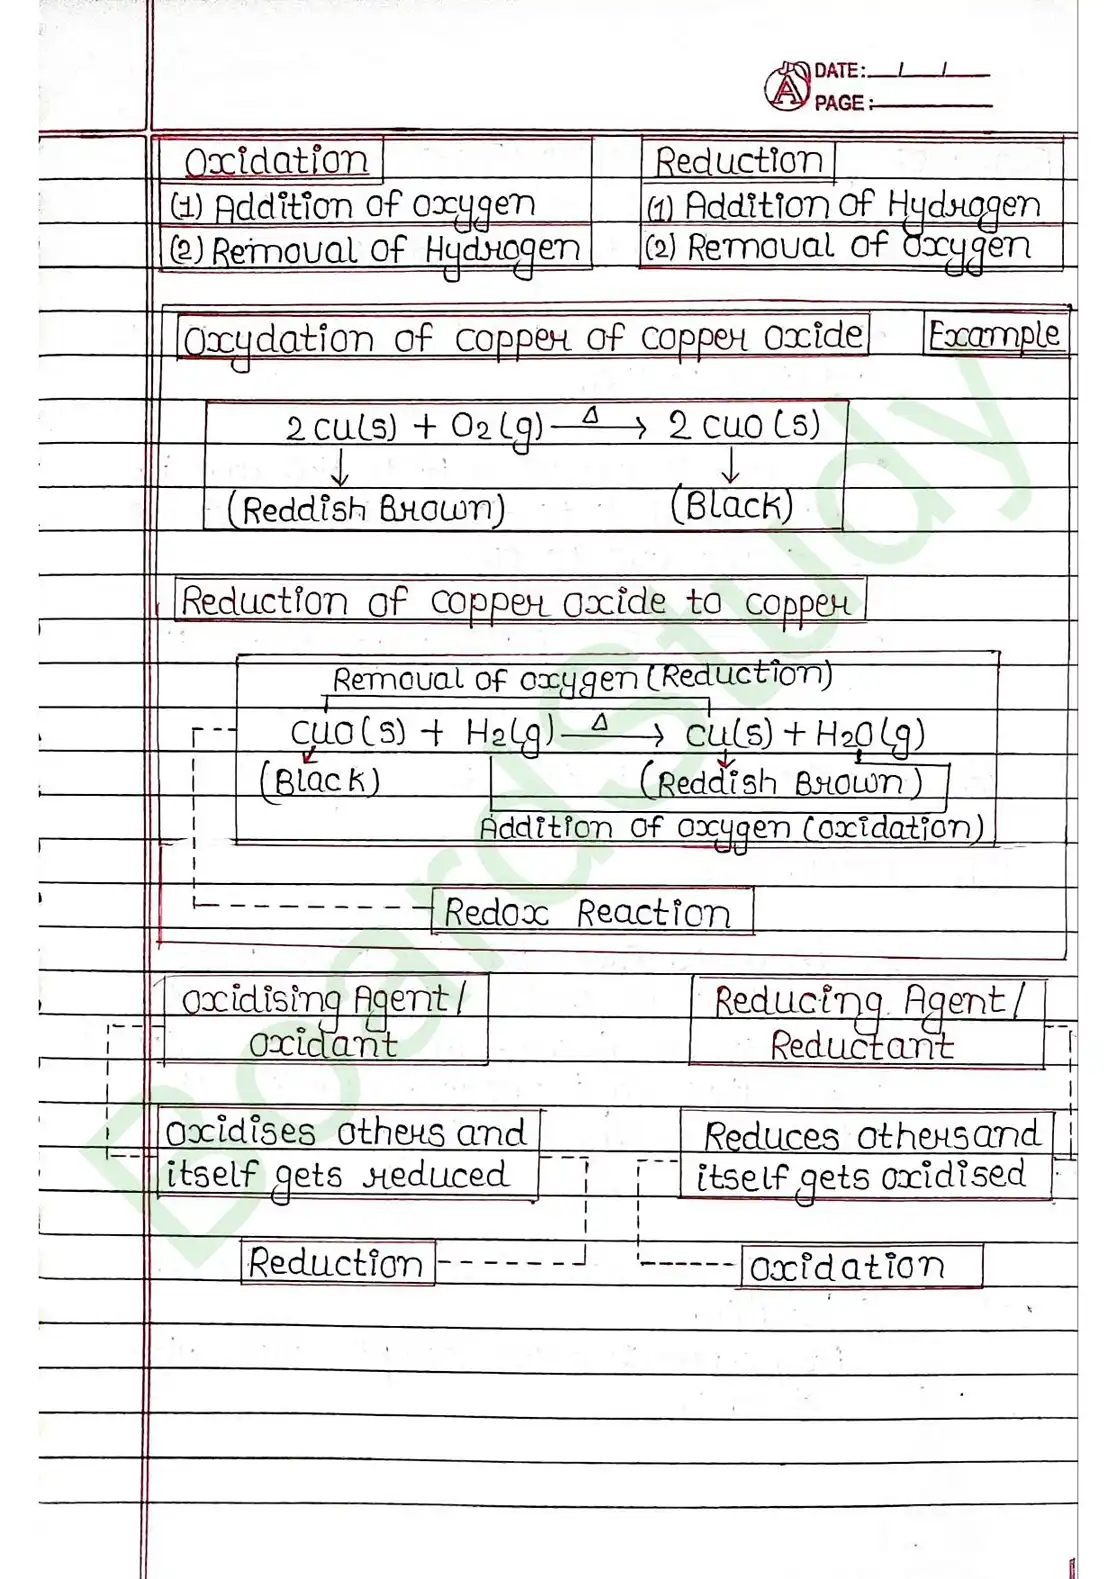 DATE: / /
PAGE:
Oxidation
(1) Addition of oxygen
(2) Removal of Hydrogen
Reduction
(1) Addition of Hydrogen
(2) Removal of Oxygen
Oxydation of copper of copper oxide
Example
2 CU(s) + O2(g) —Δ→ 2 CUO(s)
(Reddish Brown)
(Black)
Reduction of copper oxide to copper
Removal of oxygen (Reduction)
CUO(s) + H2(g) —Δ→ CU(s) + H2O(g)
(Black)
(Reddish Brown)
Addition of oxygen (oxidation)
Redox Reaction
oxidising Agent/
oxidant
Reducing Agent/
Reductant
oxidises others and
itself gets reduced
Reduces others and
itself gets oxidised
Reduction
oxidation
BoardStudy